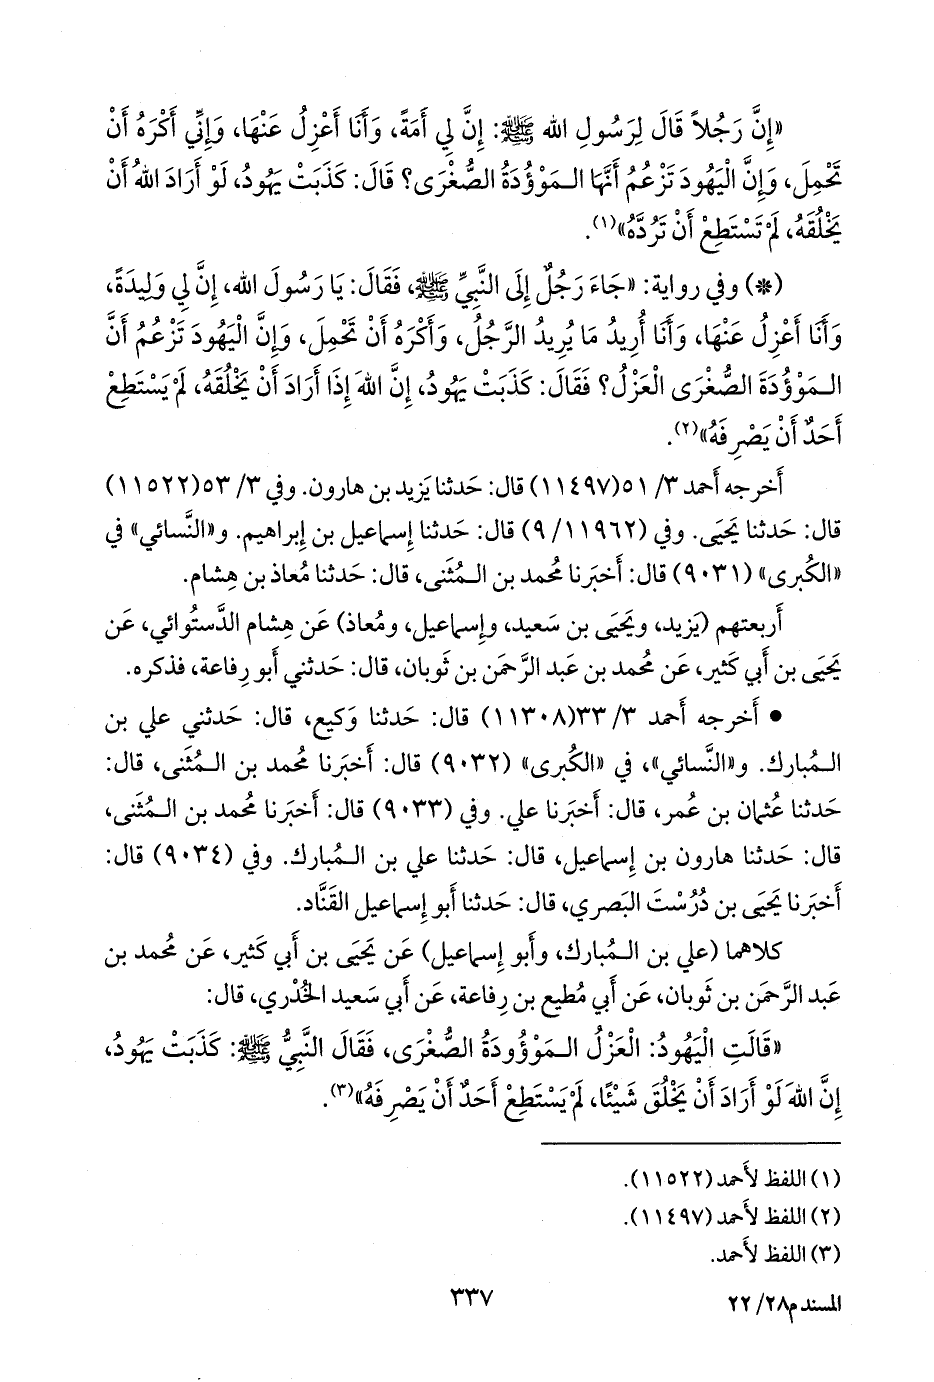 «إِنَّ رَجُلاً قَالَ لِرَسُولِ الله ﷺ: إِنَّ لِي أَمَةً، وَأَنَا أَعْزِلُ عَنْهَا، وَإِنِّي أَكْرَهُ أَنْ
تَحْمِلَ، وَإِنَّ الْيَهُودَ تَزْعُمُ أَنَّهَا الـمَوْؤُدَةُ الصُّغْرَى؟ قَالَ: كَذَبَتْ يَهُودُ، لَوْ أَرَادَ اللهُ أَنْ
يَخْلُقَهُ، لَمْ تَسْتَطِعْ أَنْ تَرُدَّهُ»(١).
(*) وفي رواية: «جَاءَ رَجُلٌ إِلَى النَّبِيِّ ﷺ، فَقَالَ: يَا رَسُولَ الله، إِنَّ لِي وَلِيدَةً،
وَأَنَا أَعْزِلُ عَنْهَا، وَأَنَا أُرِيدُ مَا يُرِيدُ الرَّجُلُ، وَأَكْرَهُ أَنْ تَحْمِلَ، وَإِنَّ الْيَهُودَ تَزْعُمُ أَنَّ
الـمَوْؤُدَةَ الصُّغْرَى الْعَزْلُ؟ فَقَالَ: كَذَبَتْ يَهُودُ، إِنَّ اللهَ إِذَا أَرَادَ أَنْ يَخْلُقَهُ، لَمْ يَسْتَطِعْ
أَحَدٌ أَنْ يَصْرِفَهُ»(٢).
أَخرجه أَحمد ٣/ ٥١(١١٤٩٧) قال: حَدثنا يَزيد بن هارون. وفي ٣/ ٥٣(١١٥٢٢)
قال: حَدثنا يَحيَى. وفي (١١٩٦٢/ ٩) قال: حَدثنا إِسماعيل بن إِبراهيم. و«النَّسائي» في
«الكُبرى» (٩٠٣١) قال: أَخبَرنا مُحمد بن الـمُثَنى، قال: حَدثنا مُعاذ بن هِشام.
أَربعتهم (يَزيد، ويَحيَى بن سَعيد، وإِسماعيل، ومُعاذ) عَن هِشام الدَّستُوائي، عَن
يَحيَى بن أَبي كَثير، عَن مُحمد بن عَبد الرَّحمَن بن ثَوبان، قال: حَدثني أَبو رِفاعة، فذكره.
• أَخرجه أَحمد ٣/ ٣٣(١١٣٠٨) قال: حَدثنا وَكيع، قال: حَدثني علي بن
الـمُبارك. و«النَّسائي»، في «الكُبرى» (٩٠٣٢) قال: أَخبَرنا مُحمد بن الـمُثَنى، قال:
حَدثنا عُثمان بن عُمر، قال: أَخبَرنا علي. وفي (٩٠٣٣) قال: أَخبَرنا مُحمد بن الـمُثنى،
قال: حَدثنا هارون بن إِسماعيل، قال: حَدثنا علي بن الـمُبارك. وفي (٩٠٣٤) قال:
أَخبَرنا يَحيَى بن دُرُسْتَ البَصري، قال: حَدثنا أَبو إِسماعيل القَنَّاد.
كلاهما (علي بن الـمُبارك، وأَبو إِسماعيل) عَن يَحيَى بن أَبي كَثير، عَن مُحمد بن
عَبد الرَّحمَن بن ثَوبان، عَن أَبي مُطيع بن رِفاعة، عَن أَبي سَعيد الخُدْري، قال:
«قَالَتِ الْيَهُودُ: الْعَزْلُ الـمَوْؤُودَةُ الصُّغْرَى، فَقَالَ النَّبِيُّ ﷺ: كَذَبَتْ يَهُودُ،
إِنَّ اللهَ لَوْ أَرَادَ أَنْ يَخْلُقَ شَيْئًا، لَمْ يَسْتَطِعْ أَحَدٌ أَنْ يَصْرِفَهُ»(٣).
(١) اللفظ لأَحمد (١١٥٢٢).
(٢) اللفظ لأَحمد (١١٤٩٧).
(٣) اللفظ لأَحمد.
المسند م٢٨/ ٢٢
٣٣٧